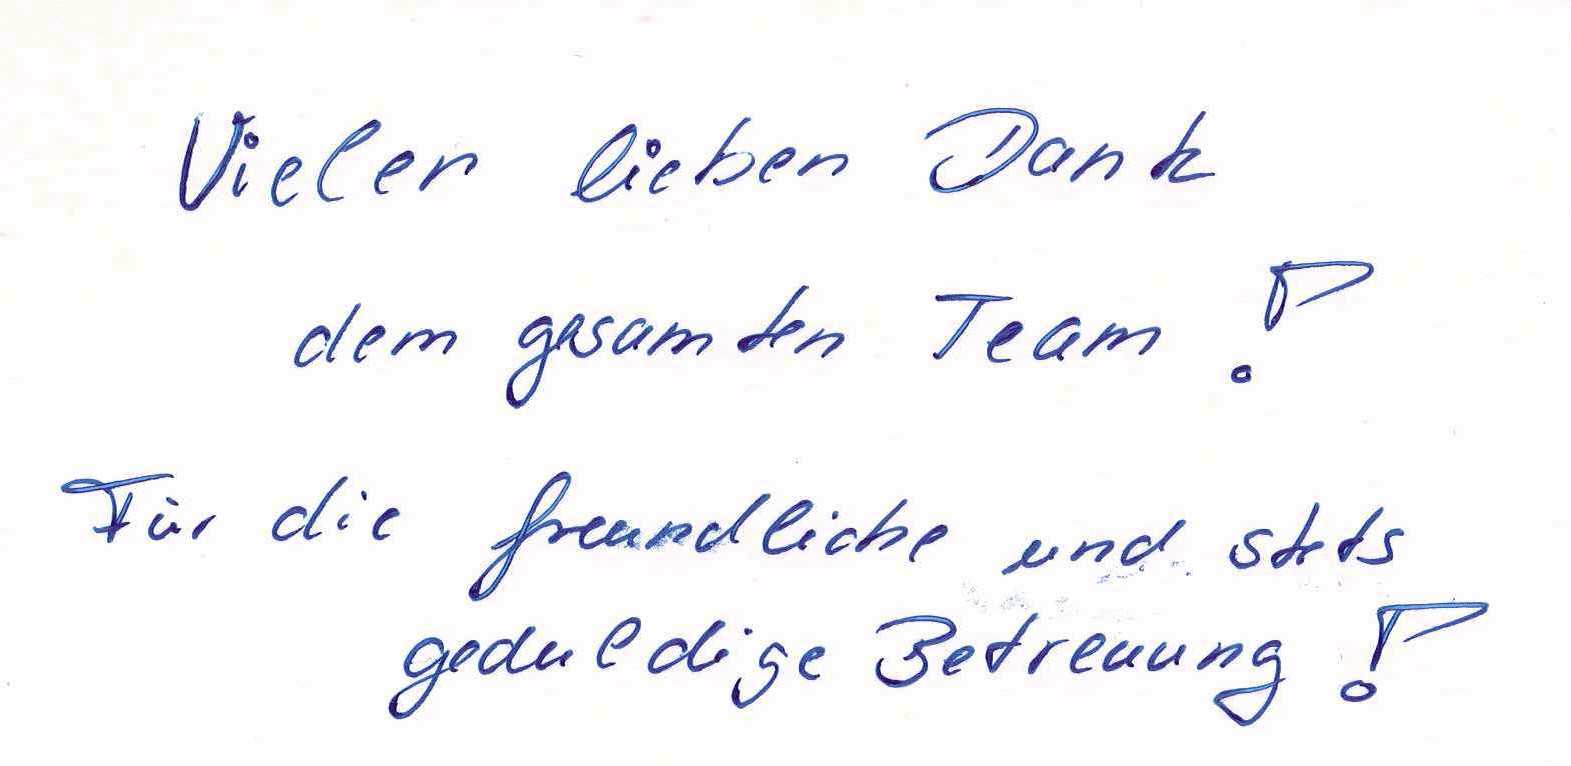 Vielen lieben Dank
dem gesamten Team!
Für die freundliche und stets
geduldige Betreuung!